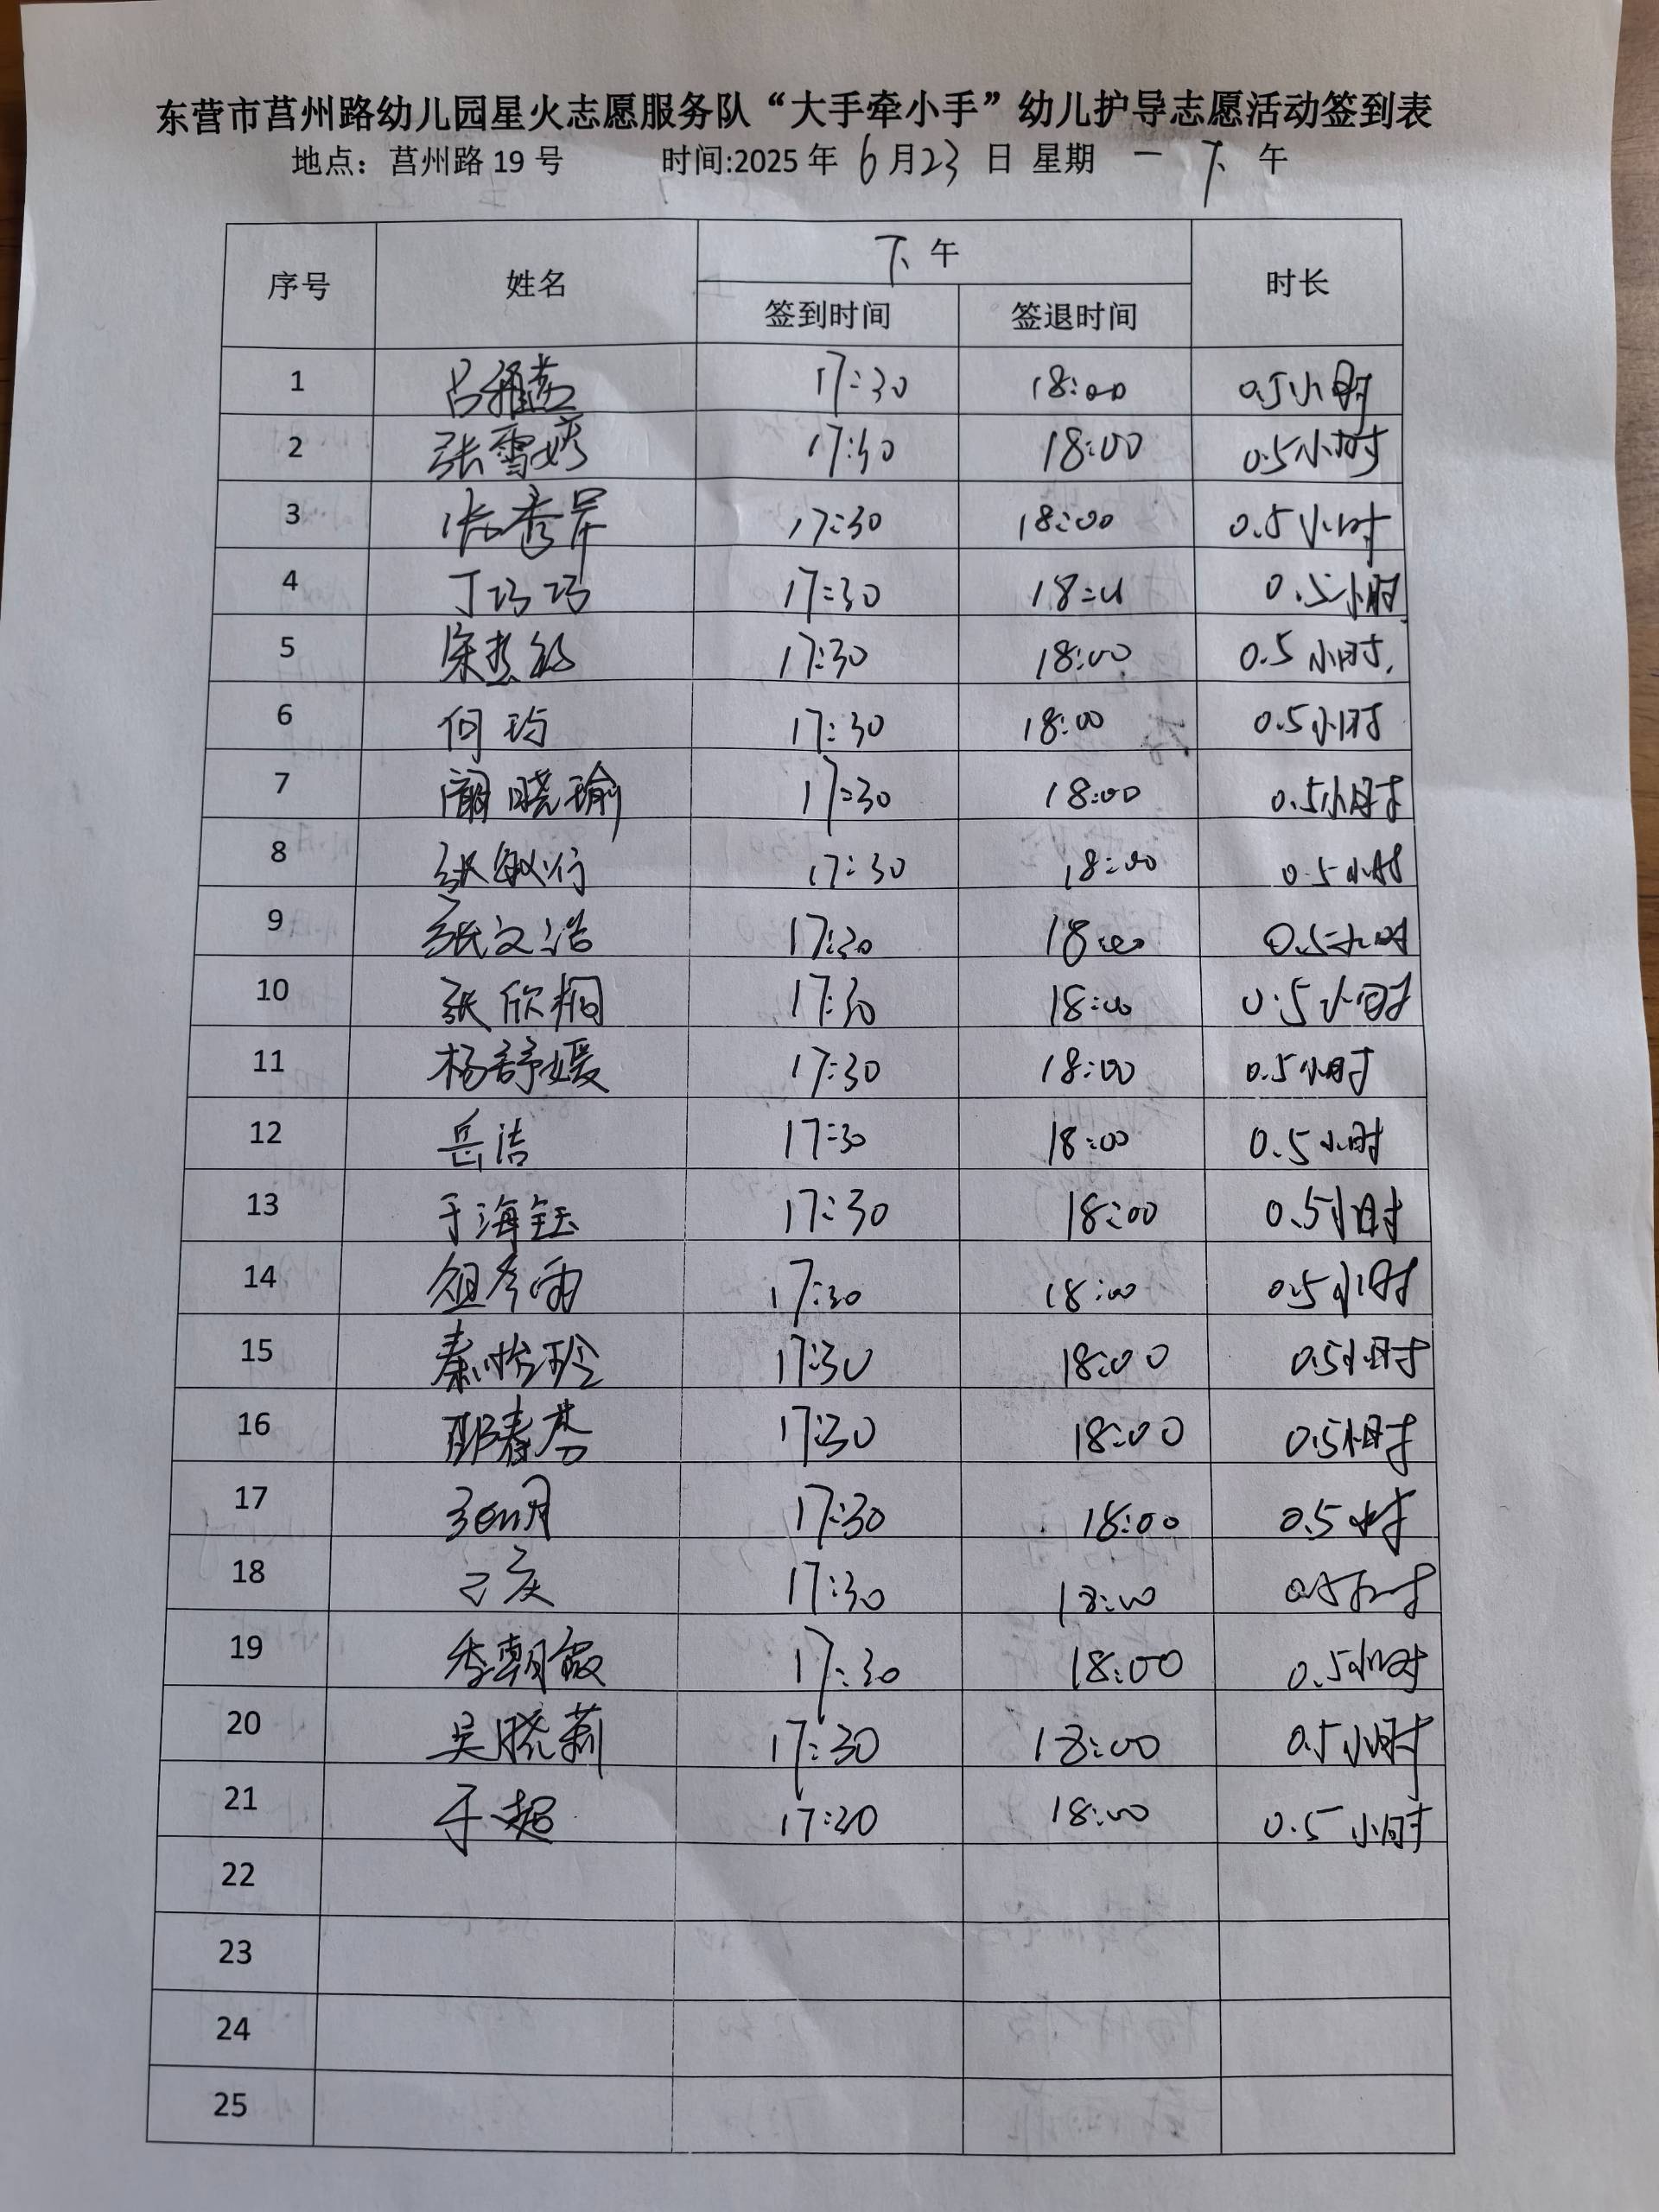 东营市莒州路幼儿园星火志愿服务队“大手牵小手”幼儿护导志愿活动签到表
地点：莒州路 19 号 时间:2025 年 6 月 23 日 星期 一 下 午
序号 姓名 下 午 时长
签到时间 签退时间
1 吕雅燕 17:30 18:00 0.5小时
2 张雪婷 17:30 18:00 0.5小时
3 张秀 17:30 18:00 0.5小时
4 丁巧巧 17:30 18:00 0.5小时
5 17:30 18:00 0.5小时.
6 何玙 17:30 18:00 0.5小时
7 阚晓瑜 17:30 18:00 0.5小时
8 张敏行 17:30 18:00 0.5小时
9 张文浩 17:30 18:00 0.5小时
10 张欣桐 17:30 18:00 0.5小时
11 杨舒媛 17:30 18:00 0.5小时
12 岳洁 17:30 18:00 0.5小时
13 于海钰 17:30 18:00 0.5小时
14 17:30 18:00 0.5小时
15 秦怡玲 17:30 18:00 0.5小时
16 春杏 17:30 18:00 0.5小时
17 17:30 18:00 0.5小时
18 17:30 18:00 0.5小时
19 李朝霞 17:30 18:00 0.5小时
20 吴晓莉 17:30 18:00 0.5小时
21 于超 17:30 18:00 0.5小时
22
23
24
25